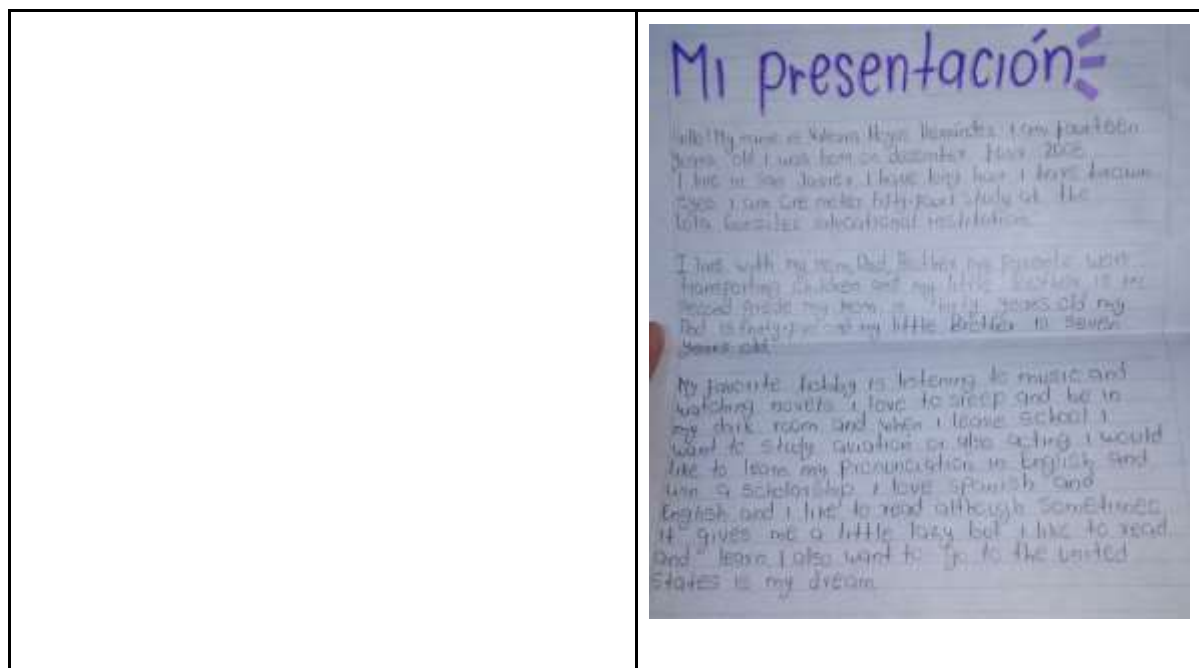 Mi presentación
Hello! My name is I am fourteen
years old I was born on december four 2008
I live in San Javier I have long hair I have brown
eyes I am one meter fifty-four study at the
educational institution
I live with my mom, Dad, Brother my parents work
transporting children and my little Brother is in
second grade my mom is thirty years old my
Dad is and my little Brother is seven
years old
My favorite hobby is listening to music and
watching novels i love to sleep and be in
my dark room and when i leave school i
want to study aviation or also acting i would
like to learn my pronunciation in English and
a scholarship i love spanish and
English and i like to read although sometimes
it gives me a little lazy but i like to read
and learn i also want to go to the united
states is my dream